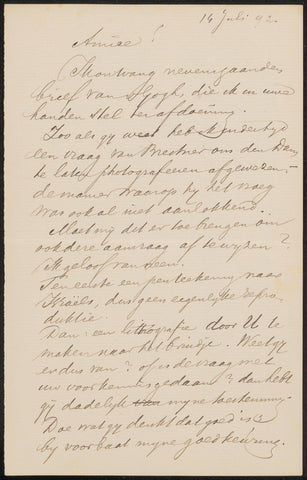 14 Juli 92.
Amice!
Ik ontvang nevensgaanden
brief van Gogh, die ik in uwe
handen stel ter afdoening.
Zoo als gy weet heb ik indertyd
een vraag van Preetner om den
te laten photografeeren afgewezen,-
de manier waarop hy het vroeg
was ook al niet aanlokkend.
Moet my dit er toe brengen om
ook deze aanvraag af te wyzen?
Ik geloof van neen.
Ten eerste een penteekening naar
Israëls, dus geen eigenlyke repro-
duktie.
Dan: een lithografie door U te
maken naar het briefje. Weet gy
er dus van? of is de vraag met
uw voorkennis gedaan? dan hebt
gij dadelyk myne toestemming.
Doe wat gy denkt dat goed is
by voorbaat myne goedkeuring.